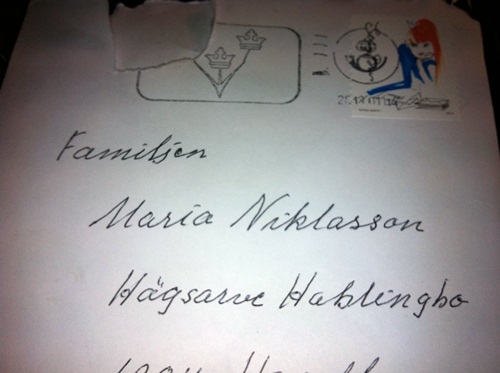 Familjen
Maria Niklasson
Hägsarve Hablingbo